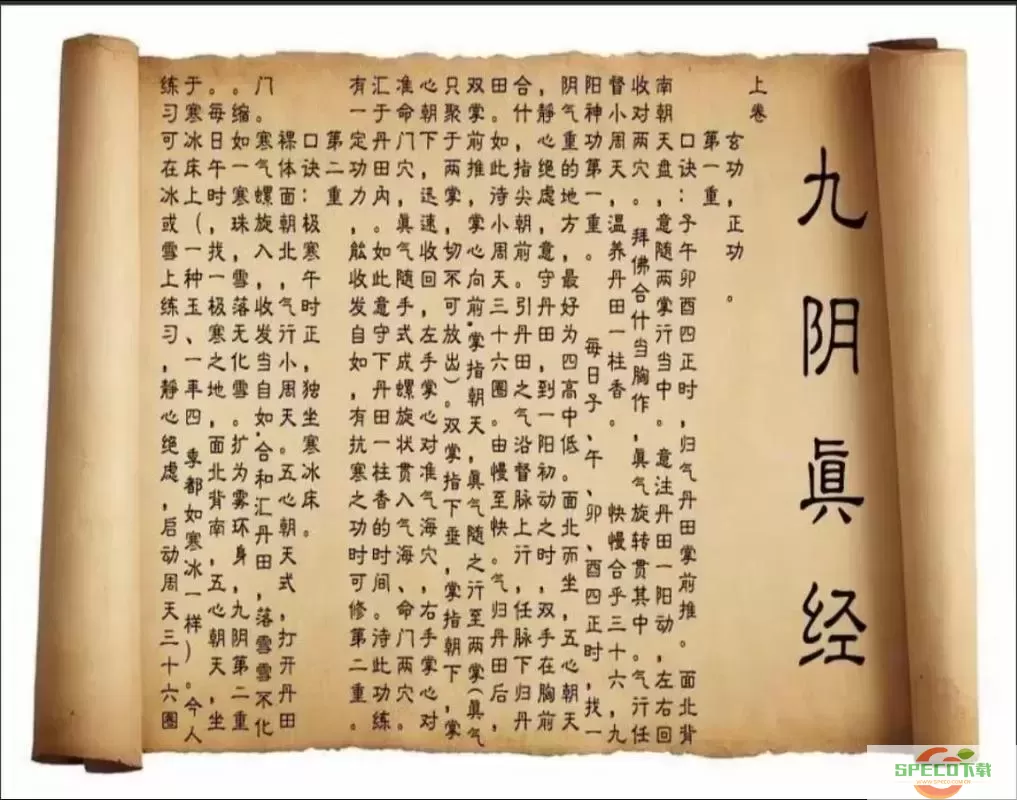 九阴眞经
上卷
玄功，正功。
第一重
口诀：子午卯酉四正时，归气丹田掌前推。面北背
南朝天盘，意随两掌行当中。意注丹田一阳动，左右回
收对两穴。拜佛合什当胸作，眞气旋转贯其中。气行任
督小周天，温养丹田一柱香。快慢合乎三十六，九
阳神功第一重。每日子、午、卯、酉四正时，找一
阴气重的地方，最好为四高中低。面北而坐，五心朝天
，静心绝虑，意守丹田，到一阳初动之时，双手在胸前
合什，指尖朝前。引丹田之气沿督脉上行，任脉下归丹
田。如此待小周天三十六圈。由慢至快。气归丹田后，
双掌前推，掌心向前，掌指朝天，眞气随之行至两掌(眞气
只聚于两掌，切不可放出)。双掌指下垂，掌指朝下，掌
心朝下，迅速收回，左手掌心对准气海穴，右手掌心对
准命门穴，眞气随手式成螺旋状贯入气海、命门两穴。
汇于丹田内。如此意守下丹田一柱香的时间。待此功练
有一定功力，能收发自如，有抗寒之功时可修第二重。
第二重
口诀：极寒午时正，独坐寒冰床。
裸体面朝北，气行小周天。五心朝天式，打开丹田
门。寒气螺旋入，收发当自如，合和汇丹田，落雪雪不化
。缩如一寒珠，雪落无化雪。扩为雾环身，九阴第二重
。每日午时，找一极寒之地，面北背南，五心朝天，坐
于寒冰床上(一种玉、一年四季都如寒冰一样)。今人
练习可在冰或雪上练习，静心绝虑，启动周天三十六圈
SPECO下载
WWW.SPECO.COM.CN